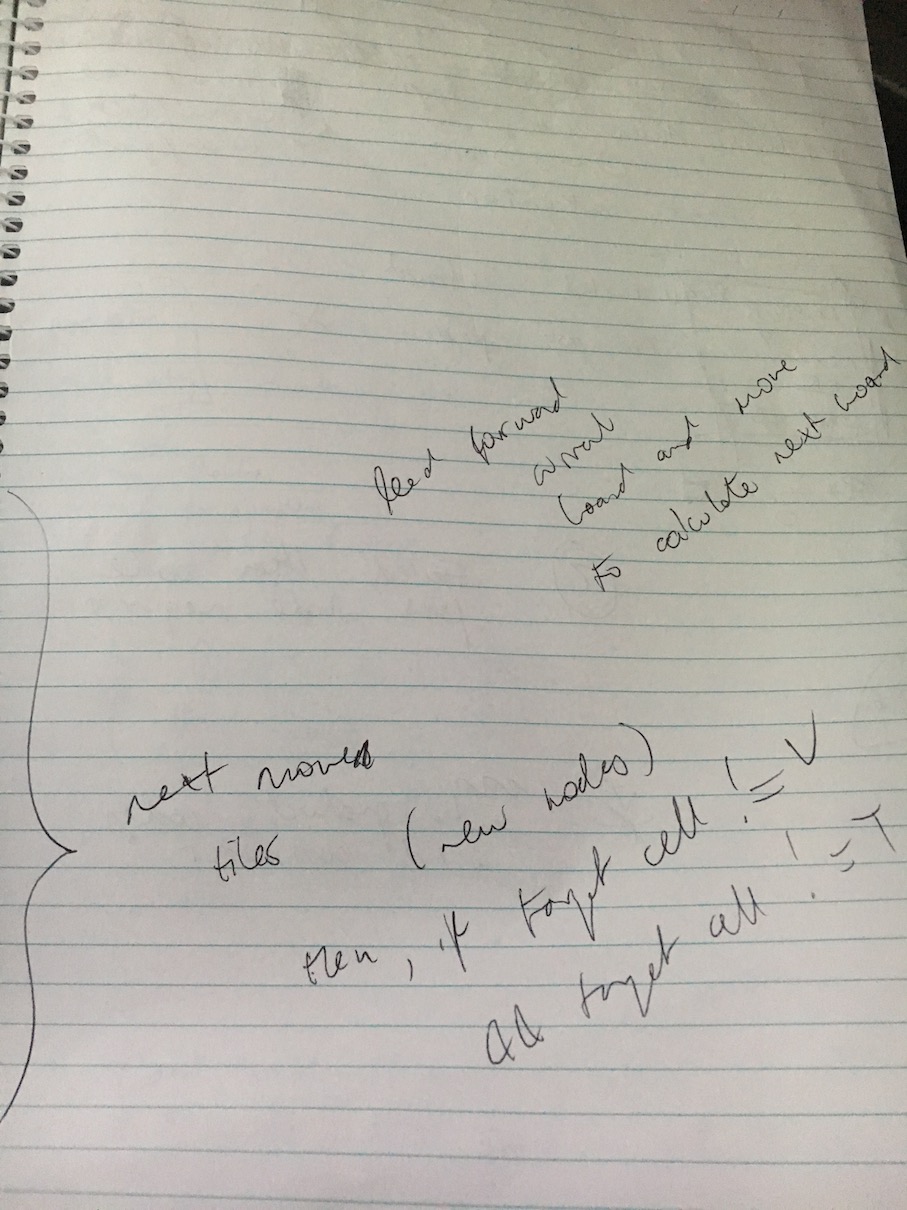 feed forward
board and move
to calculate next board
next moves
tiles (new nodes)
then, if target cell != V
&& target cell != T